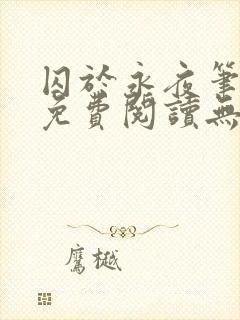 囚於永夜筆
免費閱讀無
鷹樾